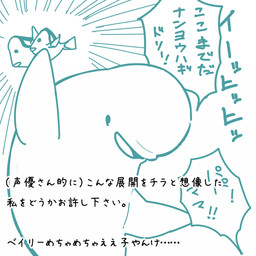 イーッヒッヒッヒッ
ここまでだ
ナンヨウハギ
ドリー!!
(声優さん的に)こんな展開をチラと想像した
私をどうかお許し下さい。
ベイリーめちゃめちゃええ子やんけ……